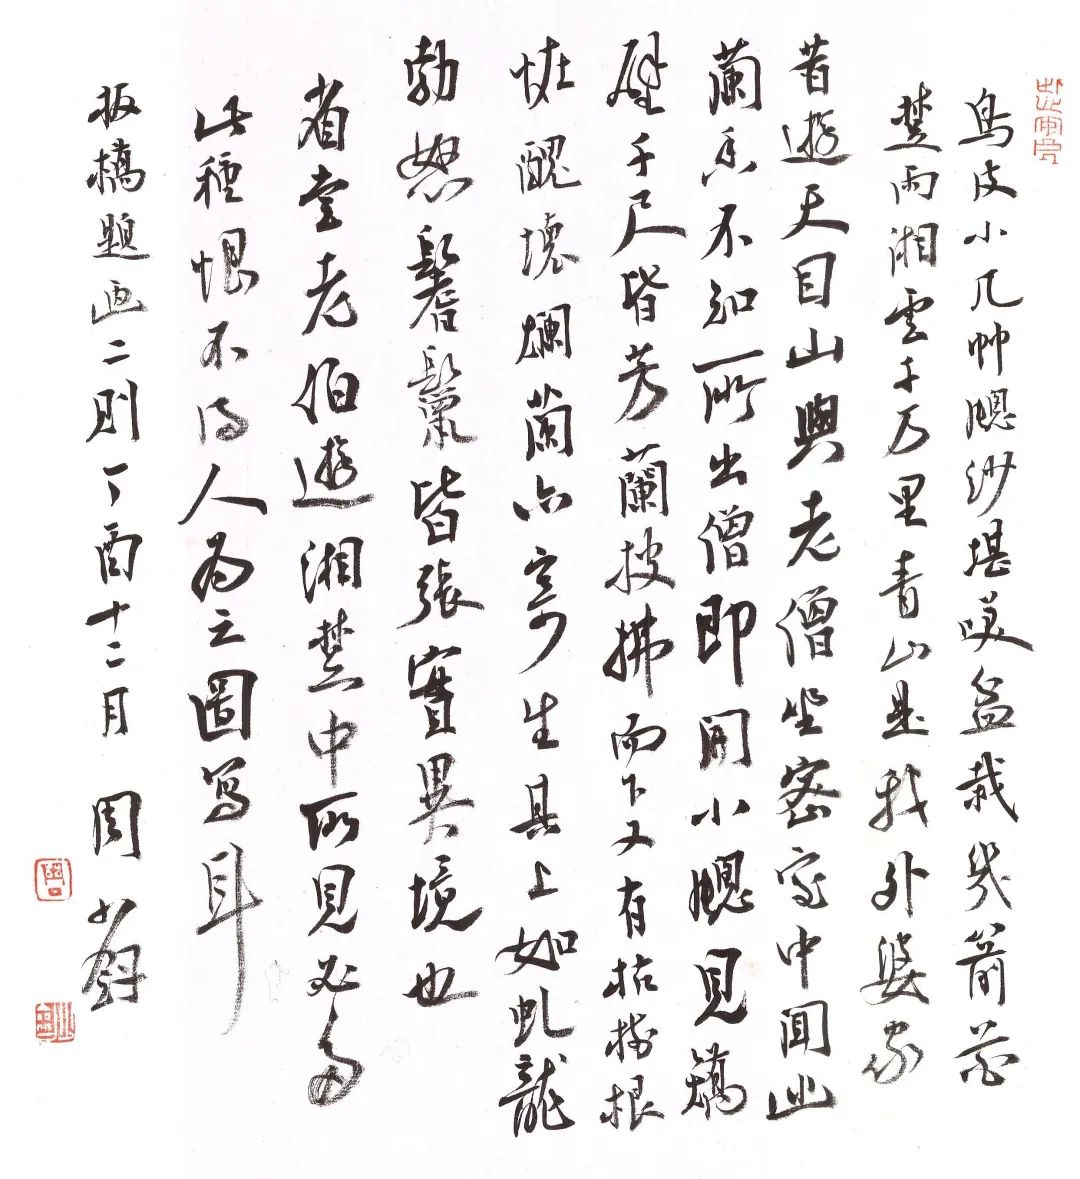 烏皮小几竹牕紗堪笑盆栽幾箭花
楚雨湘雲千万里青山是我外婆家
昔遊天目山與老僧坐密室中聞幽
蘭香不知所出僧即開小牕見矯
壁千尺皆芳蘭披拂而下又有枯樹根
恠醜壞爛蘭亦寄生其上如虬龍
勃怒鬐鬣皆張實異境也
省堂老伯遊湘楚中所見必多
此種恨不得人為之圖寫耳
板橋題画二則丁酉十二月 周